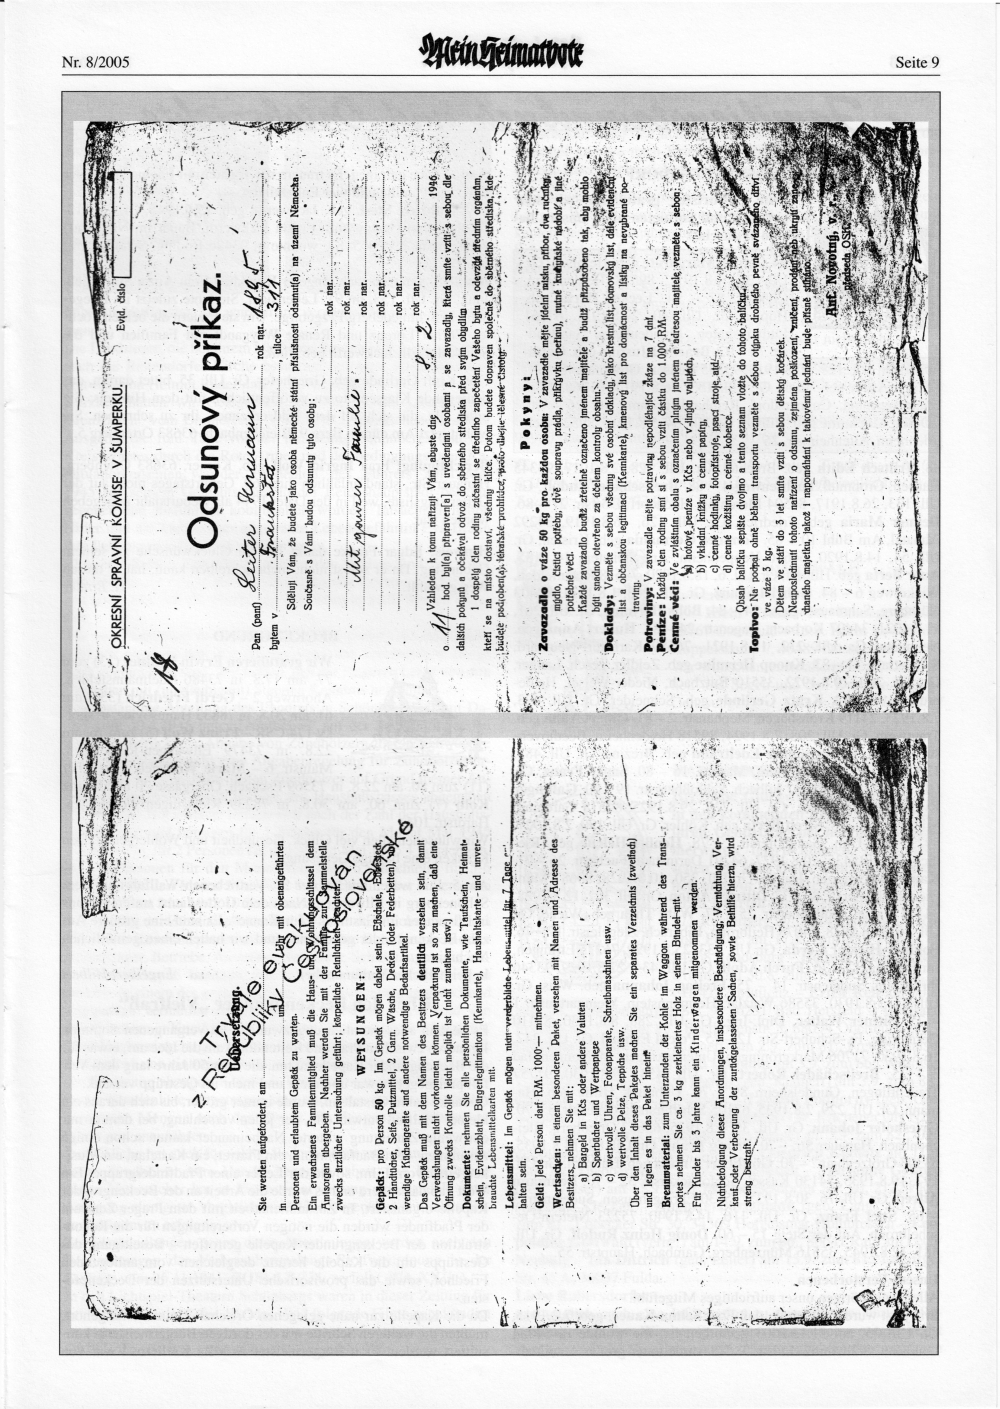 Nr. 8/2005
Mein Heimatbote
Seite 9
OKRESNÍ SPRÁVNÍ KOMISE V ŠUMPERKU.
Evid. číslo
18
Odsunový příkaz.
Pan (paní) rok nar. 1895
bytem v Frankstat ulice 311
Sděluji Vám, že budete jako osoba německé státní příslušnosti odsunut(a) na území Německa.
Současně s Vámi budou odsunuty tyto osoby:
rok nar.
rok nar.
Mit ganzer Familie. rok nar.
rok nar.
rok nar.
rok nar.
Vzhledem k tomu nařizuji Vám, abyste dne 8. 2 1946
o 11 hod. byl(a) připraven(a) s uvedenými osobami a se zavazadly, která smíte vzíti s sebou dle
dalších pokynů a očekával odvoz do sběrného střediska před svým obydlím.
1 dospělý člen rodiny zúčastní se úředního zapečetění Vašeho bytu a odevzdá úředním orgánům,
kteří se na místo dostaví, všechny klíče. Potom budete dopraven společně do sběrného střediska, kde
budete podroben(a) lékařské prohlídce, proto dbejte tělesné čistoty.
Pokyny:
Zavazadlo o váze 50 kg pro každou osobu: V zavazadle mějte jídelní misku, příbor, dva ručníky,
mýdlo, čisticí potřeby, dvě soupravy prádla, přikrývku (peřinu), nutné kuchyňské nádobí a jiné
potřebné věci.
Každé zavazadlo budiž zřetelně označeno jménem majitele a budiž přizpůsobeno tak, aby mohlo
býti snadno otevřeno za účelem kontroly obsahu.
Doklady: Vezměte s sebou všechny své osobní doklady, jako křestní list, domovský list, dále evidenční
list a občanskou legitimaci (Kennkarte), kmenový list pro domácnost a lístky na nevybrané po-
traviny.
Potraviny: V zavazadle mějte potraviny nepodléhající zkáze na 7 dní.
Peníze: Každý člen rodiny smí si s sebou vzíti částku do 1.000 RM.
Cenné věci: Ve zvláštním obalu s označením plným jménem a adresou majitele vezměte s sebou:
a) hotové peníze v Kčs nebo v jiných valutách,
b) vkladní knížky a cenné papíry,
c) cenné hodinky, fotopřístroje, psací stroje atd.
d) cenné kožišiny a cenné koberce.
Obsah balíčku sepište dvojmo a tento seznam vložte do tohoto balíčku.
Topivo: Na podpal ohně během transportu vezměte s sebou otýpku drobného pevně svázaného dříví
ve váze 3 kg.
Dětem ve stáří do 3 let smíte vzíti s sebou dětský kočárek.
Neuposlechnutí tohoto nařízení o odsunu, zejména poškození, zničení, prodání neb ukrytí zanechaného
majetku, jakož i napomáhání k takovému jednání bude přísně stíháno.
Ant. Novotný, v. r.,
předseda OSK.
Uebersetzung.
Trvale
z Republiky
Československé
Sie werden aufgefordert, am
in Uhr mit obenangeführten
Personen und erlaubtem Gepäck zu warten.
Ein erwachsenes Familienmitglied muß die Haus- und Wohnungsschlüssel dem
Amtsorgan übergeben. Nachher werden Sie mit der Familie zur Sammelstelle
zwecks ärztlicher Untersuchung geführt; körperliche Reinlichkeit beachten.
WEISUNGEN:
Gepäck: pro Person 50 kg. Im Gepäck mögen dabei sein: Eßschale, Eßbesteck,
2 Handtücher, Seife, Putzmittel, 2 Garn. Wäsche, Decken (oder Federbetten), not-
wendige Küchengeräte und andere notwendige Bedarfsartikel.
Das Gepäck muß mit dem Namen des Besitzers deutlich versehen sein, damit
Verwechslungen nicht vorkommen können. Verpackung ist so zu machen, daß eine
Öffnung zwecks Kontrolle leicht möglich ist (nicht zunähen usw.)
Dokumente: nehmen Sie alle persönlichen Dokumente, wie Taufschein, Heimat-
schein, Evidenzblatt, Bürgerlegitimation (Kennkarte), Haushaltskarte und unver-
brauchte Lebensmittelkarten mit.
Lebensmittel: Im Gepäck mögen nicht verderbliche Lebensmittel für 7 Tage
halten sein.
Geld: Jede Person darf RM. 1000·— mitnehmen.
Wertsachen: in einem besonderen Paket, versehen mit Namen und Adresse des
Besitzers, nehmen Sie mit:
a) Bargeld in Kčs oder andere Valuten
b) Sparbücher und Wertpapiere
c) wertvolle Uhren, Fotoapparate, Schreibmaschinen usw.
d) wertvolle Pelze, Teppiche usw.
Über den Inhalt dieses Paketes machen Sie ein separates Verzeichnis (zweifach)
und legen es in das Paket hinein.
Brennmaterial: zum Unterzünden der Kohle im Waggon während des Trans-
portes nehmen Sie ca. 3 kg zerkleinertes Holz in einem Bündel mit.
Für Kinder bis 3 Jahre kann ein Kinderwagen mitgenommen werden.
Nichtbefolgung dieser Anordnungen, insbesondere Beschädigung, Vernichtung, Ver-
kauf oder Verbergung der zurückgelassenen Sachen, sowie Beihilfe hierzu, wird
streng bestraft.